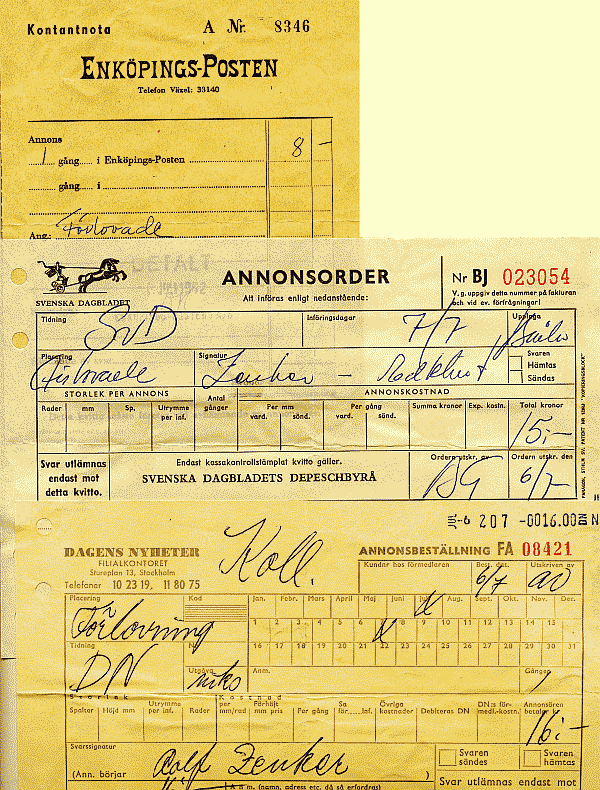 Kontantnota A Nr. 8346
ENKÖPINGS-POSTEN
Telefon Växel: 33140
Annons
1 gång i Enköpings-Posten 8 -
gång i
Ang: Förlovade
BETALT
ANNONSORDER
Nr BJ 023054
SVENSKA DAGBLADET
Att införas enligt nedanstående:
V. g. uppgiv detta nummer på fakturan
och vid ev. förfrågningar!
Tidning Införingsdagar Upplaga
SvD 7/7
Placering Signatur Svaren
Förlovade Zenker - Hämtas
Sändas
STORLEK PER ANNONS Antal gånger ANNONSKOSTNAD
Rader mm Sp. Utrymme per inf. Per mm vard. sönd. Per gång vard. sönd. Summa kronor Exp. kostn. Total kronor
15:-
Svar utlämnas
endast mot
detta kvitto.
Endast kassakontrollstämplat kvitto gäller.
SVENSKA DAGBLADETS DEPESCHBYRÅ
Orderns utskr. av Ordern utskr. den
6/7
-6 207 -0016.00
DAGENS NYHETER
FILIALKONTORET
Stureplan 13, Stockholm
Telefoner 10 23 19, 11 80 75
Koll.
ANNONSBESTÄLLNING FA 08421
Kundnr hos förmedlaren Best. dat. Utskriven av
6/7
Placering Kod Jan. Febr. Mars April Maj Juni Juli Aug. Sept. Okt. Nov. Dec.
Förlovning
1 2 3 4 5 6 7 8 9 10 11 12 13 14 15
Tidning
16 17 18 19 20 21 22 23 24 25 26 27 28 29 30 31
DN
Utgåva Anm. Gånger
riks 1
Storlek Kostnad
Spalter Höjd mm Utrymme per inf. Rader per mm/rad Förhöjt mm pris Per gång Sa för inf. Övriga kostnader Debiteras DN DN:s förmedl.-kostn. Annonsören betalar
16:-
Svarssignatur
Rolf Zenker
(Ann. börjar )
(Ann. namn, adress etc. då så erfordras)
Svaren sändes
Svaren hämtas
Svar utlämnas endast mot